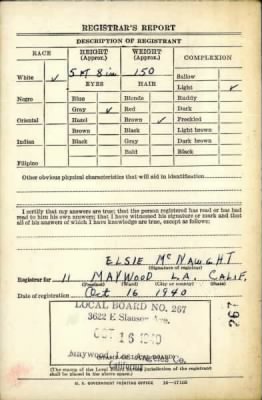 REGISTRAR'S REPORT
DESCRIPTION OF REGISTRANT
RACE HEIGHT (Approx.) WEIGHT (Approx.) COMPLEXION
5 ft 8 in 150 Sallow
White ✓ EYES HAIR Light ✓
Negro Blue Blonde Ruddy
Gray ✓ Red Dark
Oriental Hazel Brown ✓ Freckled
Brown Black Light brown
Indian Black Gray Dark brown
Bald Black
Filipino
Other obvious physical characteristics that will aid in identification
I certify that my answers are true; that the person registered has read or has had
read to him his own answers; that I have witnessed his signature or mark and that
all of his answers of which I have knowledge are true, except as follows:
ELSIE McNAUGHT
(Signature of registrar)
Registrar for 11 MAYWOOD L.A. CALIF.
(Precinct) (Ward) (City or county) (State)
Date of registration Oct 16 1940
LOCAL BOARD NO. 267
3622 E Slauson Ave.
OCT 16 1940
Maywood, Los Angeles Co.
California
(STAMP OF LOCAL BOARD)
(The stamp of the Local Board having jurisdiction of the registrant
shall be placed in the above space.)
267
U. S. GOVERNMENT PRINTING OFFICE 16—17105